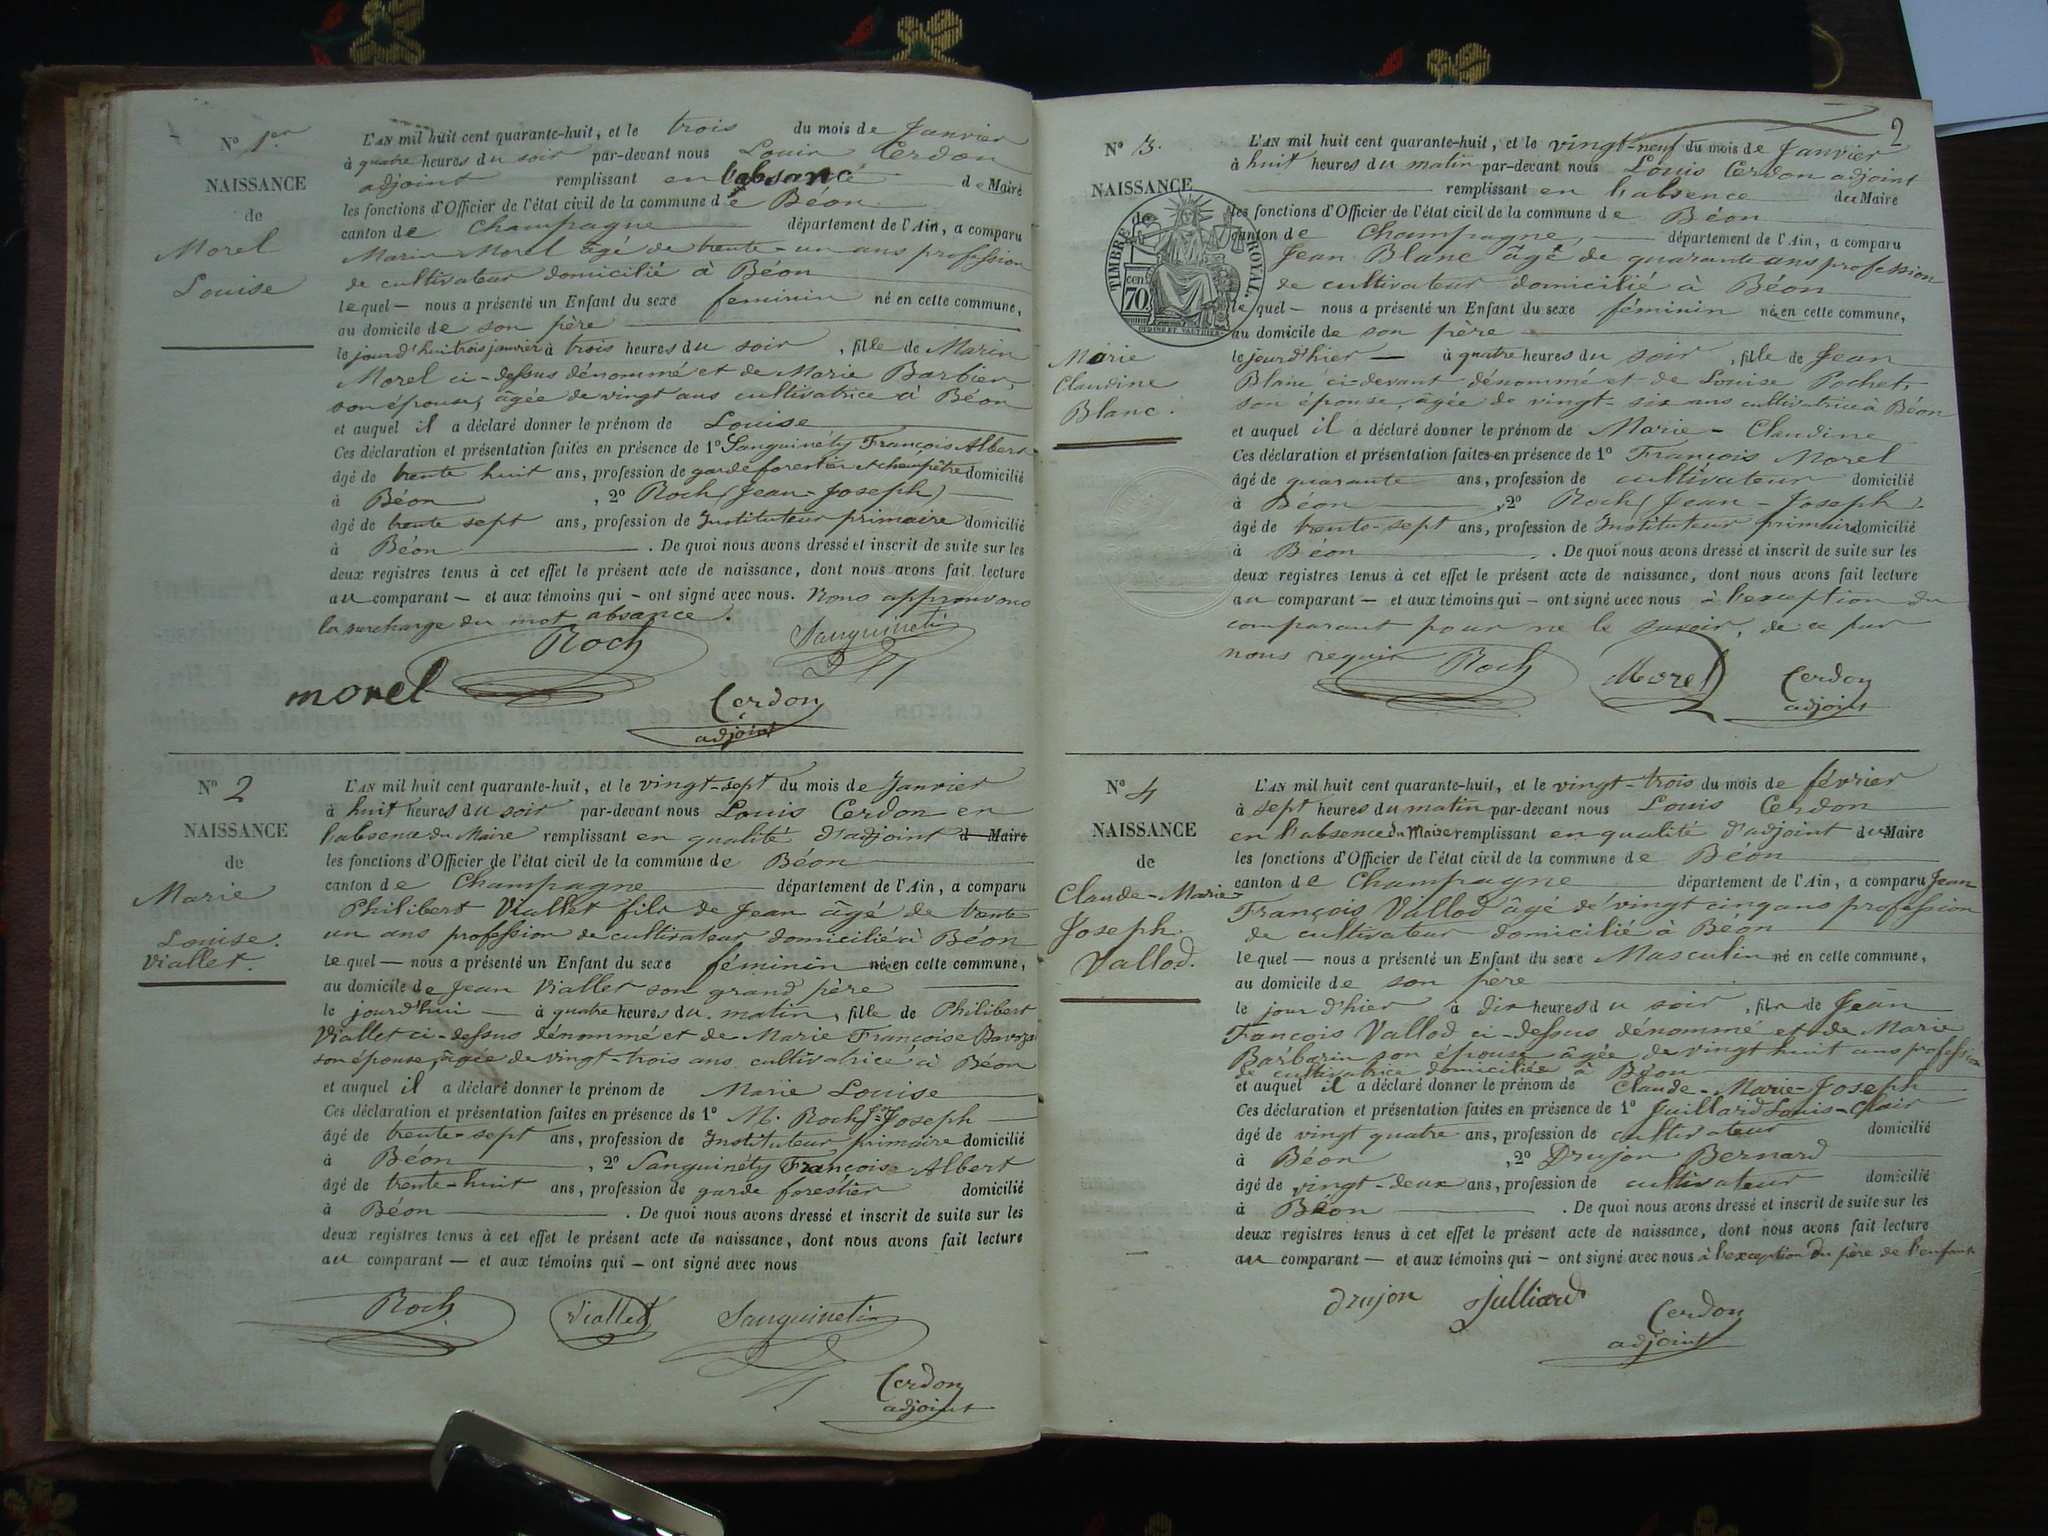 N° 1er
NAISSANCE
de
Morel
Louise
L'AN mil huit cent quarante-huit, et le trois du mois de Janvier
à quatre heures du soir par-devant nous Louis Cerdon
adjoint remplissant en l'absance de Maire
les fonctions d'Officier de l'état civil de la commune de Béon
canton de Champagne département de l'Ain, a comparu
Marin Morel âgé de trente-un ans profession
de cultivateur domicilié à Béon
lequel — nous a présenté un Enfant du sexe feminin né en cette commune,
au domicile de son père
le jourd'hui trois janvier à trois heures du soir, fille de Marin
Morel ci-dessus dénommé et de Marie Barbier,
son épouse, âgée de vingt ans cultivatrice à Béon
et auquel il a déclaré donner le prénom de Louise
Ces déclaration et présentation faites en présence de 1° Sanguinéty François Albert
âgé de trente huit ans, profession de garde forestier et champêtre domicilié
à Béon, 2° Roch (Jean-Joseph)
âgé de trente sept ans, profession de Instituteur primaire domicilié
à Béon. De quoi nous avons dressé et inscrit de suite sur les
deux registres tenus à cet effet le présent acte de naissance, dont nous avons fait lecture
au comparant — et aux témoins qui — ont signé avec nous. Nous approuvons
la surcharge du mot absance.
Roch Sanguineti
morel
Cerdon
adjoint
N° 2
NAISSANCE
de
Marie
Louise.
Viallet.
L'AN mil huit cent quarante-huit, et le vingt-sept du mois de Janvier
à huit heures du soir par-devant nous Louis Cerdon en
l'absence du Maire remplissant en qualité d'adjoint d Maire
les fonctions d'Officier de l'état civil de la commune de Béon
canton de Champagne département de l'Ain, a comparu
Philibert Viallet fils de Jean âgé de trente
un ans profession de cultivateur domicilié à Béon
lequel — nous a présenté un Enfant du sexe féminin né en cette commune,
au domicile de Jean Viallet son grand père
le jourd'hui — à quatre heures du matin, fille de Philibert
Viallet ci-dessus dénommé et de Marie Françoise
son épouse, âgée de vingt-trois ans cultivatrice à Béon
et auquel il a déclaré donner le prénom de Marie Louise
Ces déclaration et présentation faites en présence de 1° M. Roch Jn Joseph
âgé de trente-sept ans, profession de Instituteur primaire domicilié
à Béon, 2° Sanguinéty François Albert
âgé de trente-huit ans, profession de garde forestier domicilié
à Béon. De quoi nous avons dressé et inscrit de suite sur les
deux registres tenus à cet effet le présent acte de naissance, dont nous avons fait lecture
au comparant — et aux témoins qui — ont signé avec nous
Roch Viallet Sanguineti
Cerdon
adjoint
2
N° 3.
NAISSANCE
de
TIMBRE ROYAL.
70 cen
Marie
Claudine
Blanc.
L'AN mil huit cent quarante-huit, et le vingt-neuf du mois de Janvier
à huit heures du matin par-devant nous Louis Cerdon adjoint
remplissant en l'absence du Maire
les fonctions d'Officier de l'état civil de la commune de Béon
canton de Champagne, département de l'Ain, a comparu
Jean Blanc âgé de quarante ans profession
de cultivateur domicilié à Béon
lequel — nous a présenté un Enfant du sexe féminin né en cette commune,
au domicile de son père
le jourd'hier — à quatre heures du soir, fille de Jean
Blanc ci-devant dénommé et de Louise Pochet,
son épouse, âgée de vingt-six ans cultivatrice à Béon
et auquel il a déclaré donner le prénom de Marie-Claudine
Ces déclaration et présentation faites en présence de 1° François Morel
âgé de quarante ans, profession de cultivateur domicilié
à Béon, 2° Roch (Jean-Joseph)
âgé de trente-sept ans, profession de Instituteur primaire domicilié
à Béon. De quoi nous avons dressé et inscrit de suite sur les
deux registres tenus à cet effet le présent acte de naissance, dont nous avons fait lecture
au comparant — et aux témoins qui — ont signé avec nous à l'exception du
comparant pour ne le savoir, de ce par
nous requis Roch Morel Cerdon
adjoint
N° 4
NAISSANCE
de
Claude-Marie-
Joseph.
Vallod.
L'AN mil huit cent quarante-huit, et le vingt-trois du mois de février
à sept heures du matin par-devant nous Louis Cerdon
en l'absence du Maire remplissant en qualité d'adjoint du Maire
les fonctions d'Officier de l'état civil de la commune de Béon
canton de Champagne département de l'Ain, a comparu Jean
François Vallod âgé de vingt cinq ans profession
de cultivateur domicilié à Béon
lequel — nous a présenté un Enfant du sexe Masculin né en cette commune,
au domicile de son père
le jour d'hier à dix heures du soir, fils de Jean
François Vallod ci-dessus dénommé et de Marie
Barbarin son épouse âgée de vingt huit ans profession
de cultivatrice domiciliée à Béon
et auquel il a déclaré donner le prénom de Claude-Marie-Joseph
Ces déclaration et présentation faites en présence de 1° Juillard Louis-Clair
âgé de vingt quatre ans, profession de cultivateur domicilié
à Béon, 2° Drujon Bernard
âgé de vingt-deux ans, profession de cultivateur domicilié
à Béon. De quoi nous avons dressé et inscrit de suite sur les
deux registres tenus à cet effet le présent acte de naissance, dont nous avons fait lecture
au comparant — et aux témoins qui — ont signé avec nous à l'exception du père de l'enfant
Drujon Julliard Cerdon
adjoint